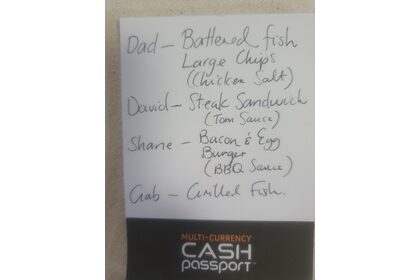 Dad – Battered fish
Large Chips
(Chicken Salt)
David – Steak Sandwich
(Tom Sauce)
Shane – Bacon & Egg
Burger
(BBQ Sauce)
Gab – Grilled Fish.
MULTI-CURRENCY
CASH
passport™